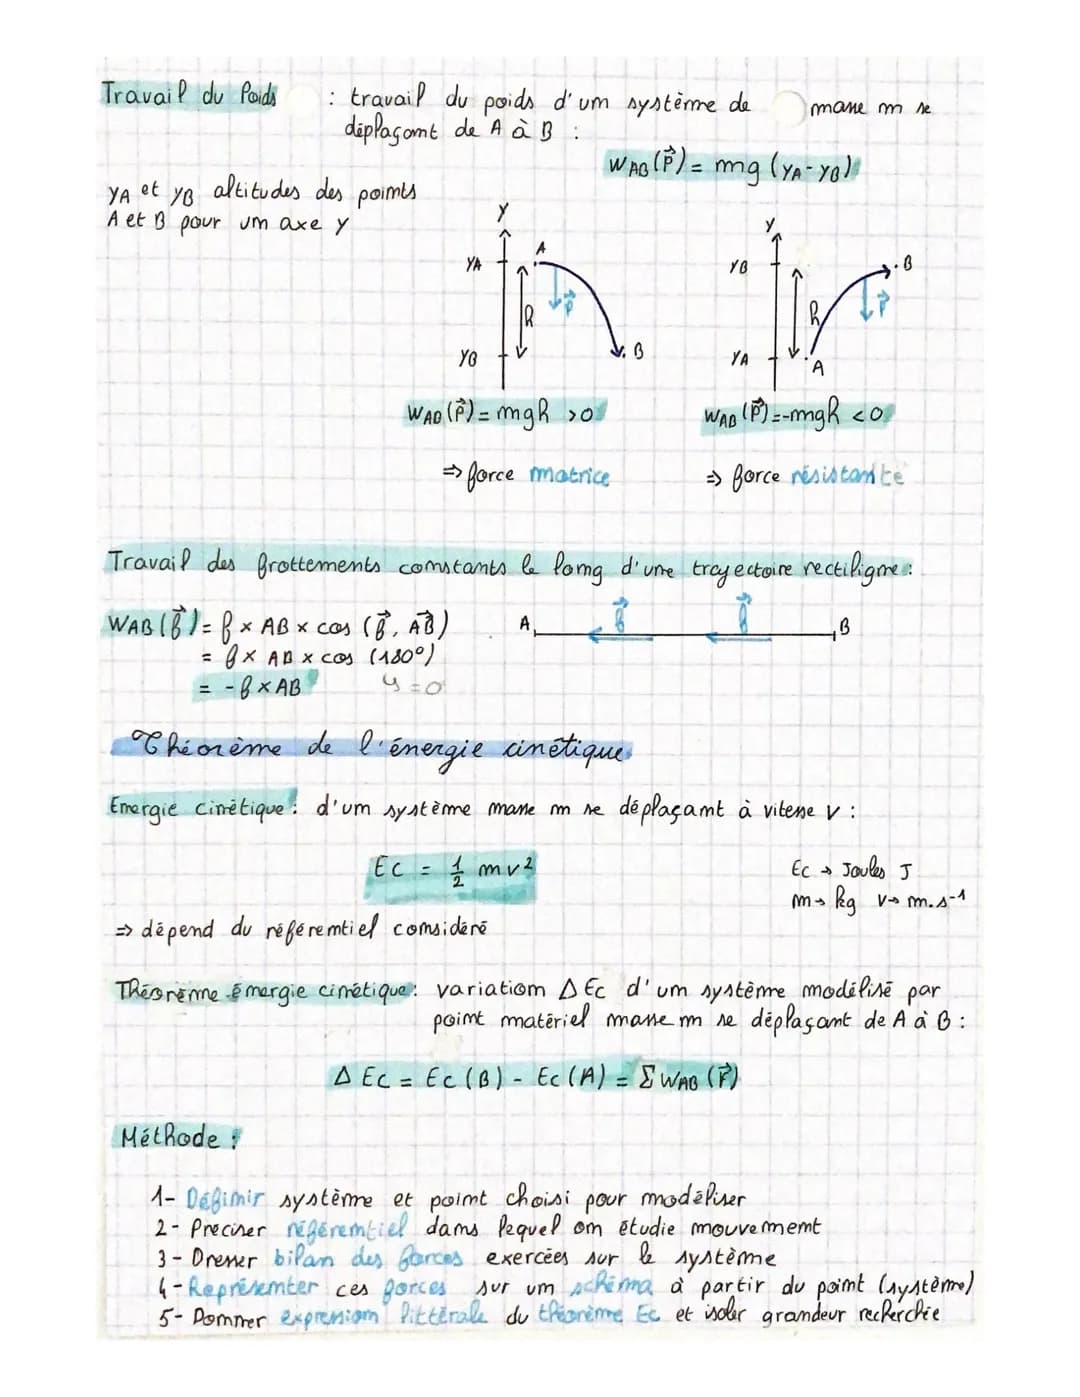 Travail du Poids : travail du poids d'un système de masse m se
déplaçant de A à B :
WAB (P⃗) = mg (yA - yB)
yA et yB altitudes des points
A et B pour un axe y
y
yA
A
P⃗
h
yB
B
y
yB
B
P⃗
h
yA
A
WAB (P⃗) = mgh > 0
WAB (P⃗) = -mgh < 0
⇒ force motrice
⇒ force résistante
Travail des frottements constants le long d'une trajectoire rectiligne :
WAB (f⃗) = f × AB × cos (f⃗, AB⃗)
A f⃗ f⃗ B
= f × AB × cos (180°)
= - f × AB
Théorème de l'énergie cinétique
Energie cinétique : d'un système masse m se déplaçant à vitesse v :
Ec = 1/2 mv²
Ec → Joules J
m → kg v → m.s-1
⇒ dépend du référentiel considéré
Théorème énergie cinétique : variation Δ Ec d'un système modélisé par
point matériel masse m se déplaçant de A à B :
Δ Ec = Ec (B) - Ec (A) = Σ WAB (F⃗)
Méthode :
1- Définir système et point choisi pour modéliser
2- Préciser référentiel dans lequel on étudie mouvement
3- Dresser bilan des forces exercées sur le système
4- Représenter ces forces sur un schéma à partir du point (système)
5- Donner expression littérale du théorème Ec et isoler grandeur recherchée